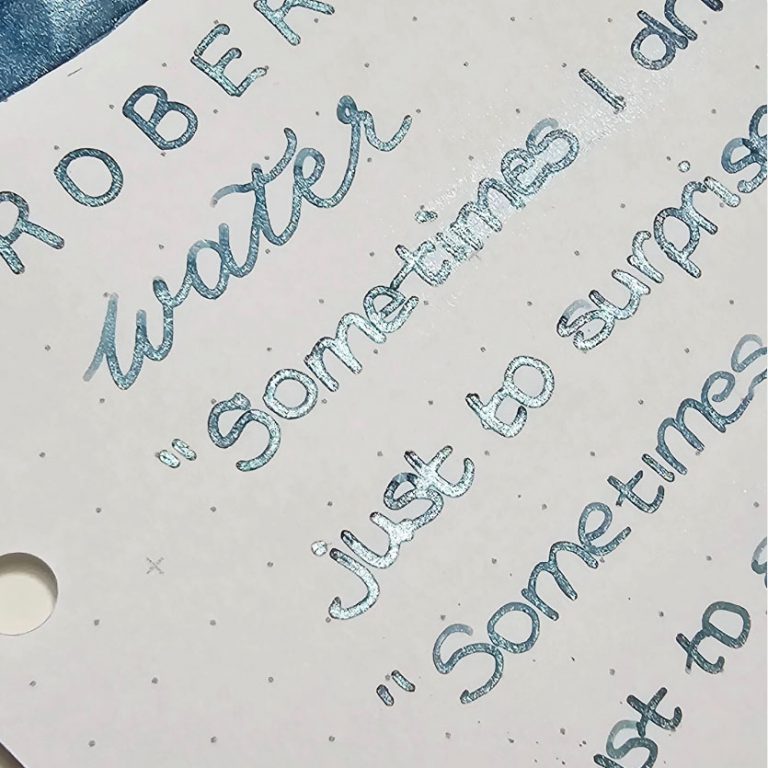 ROBER
water
"Sometimes I
just to surprise
"Sometimes
just to